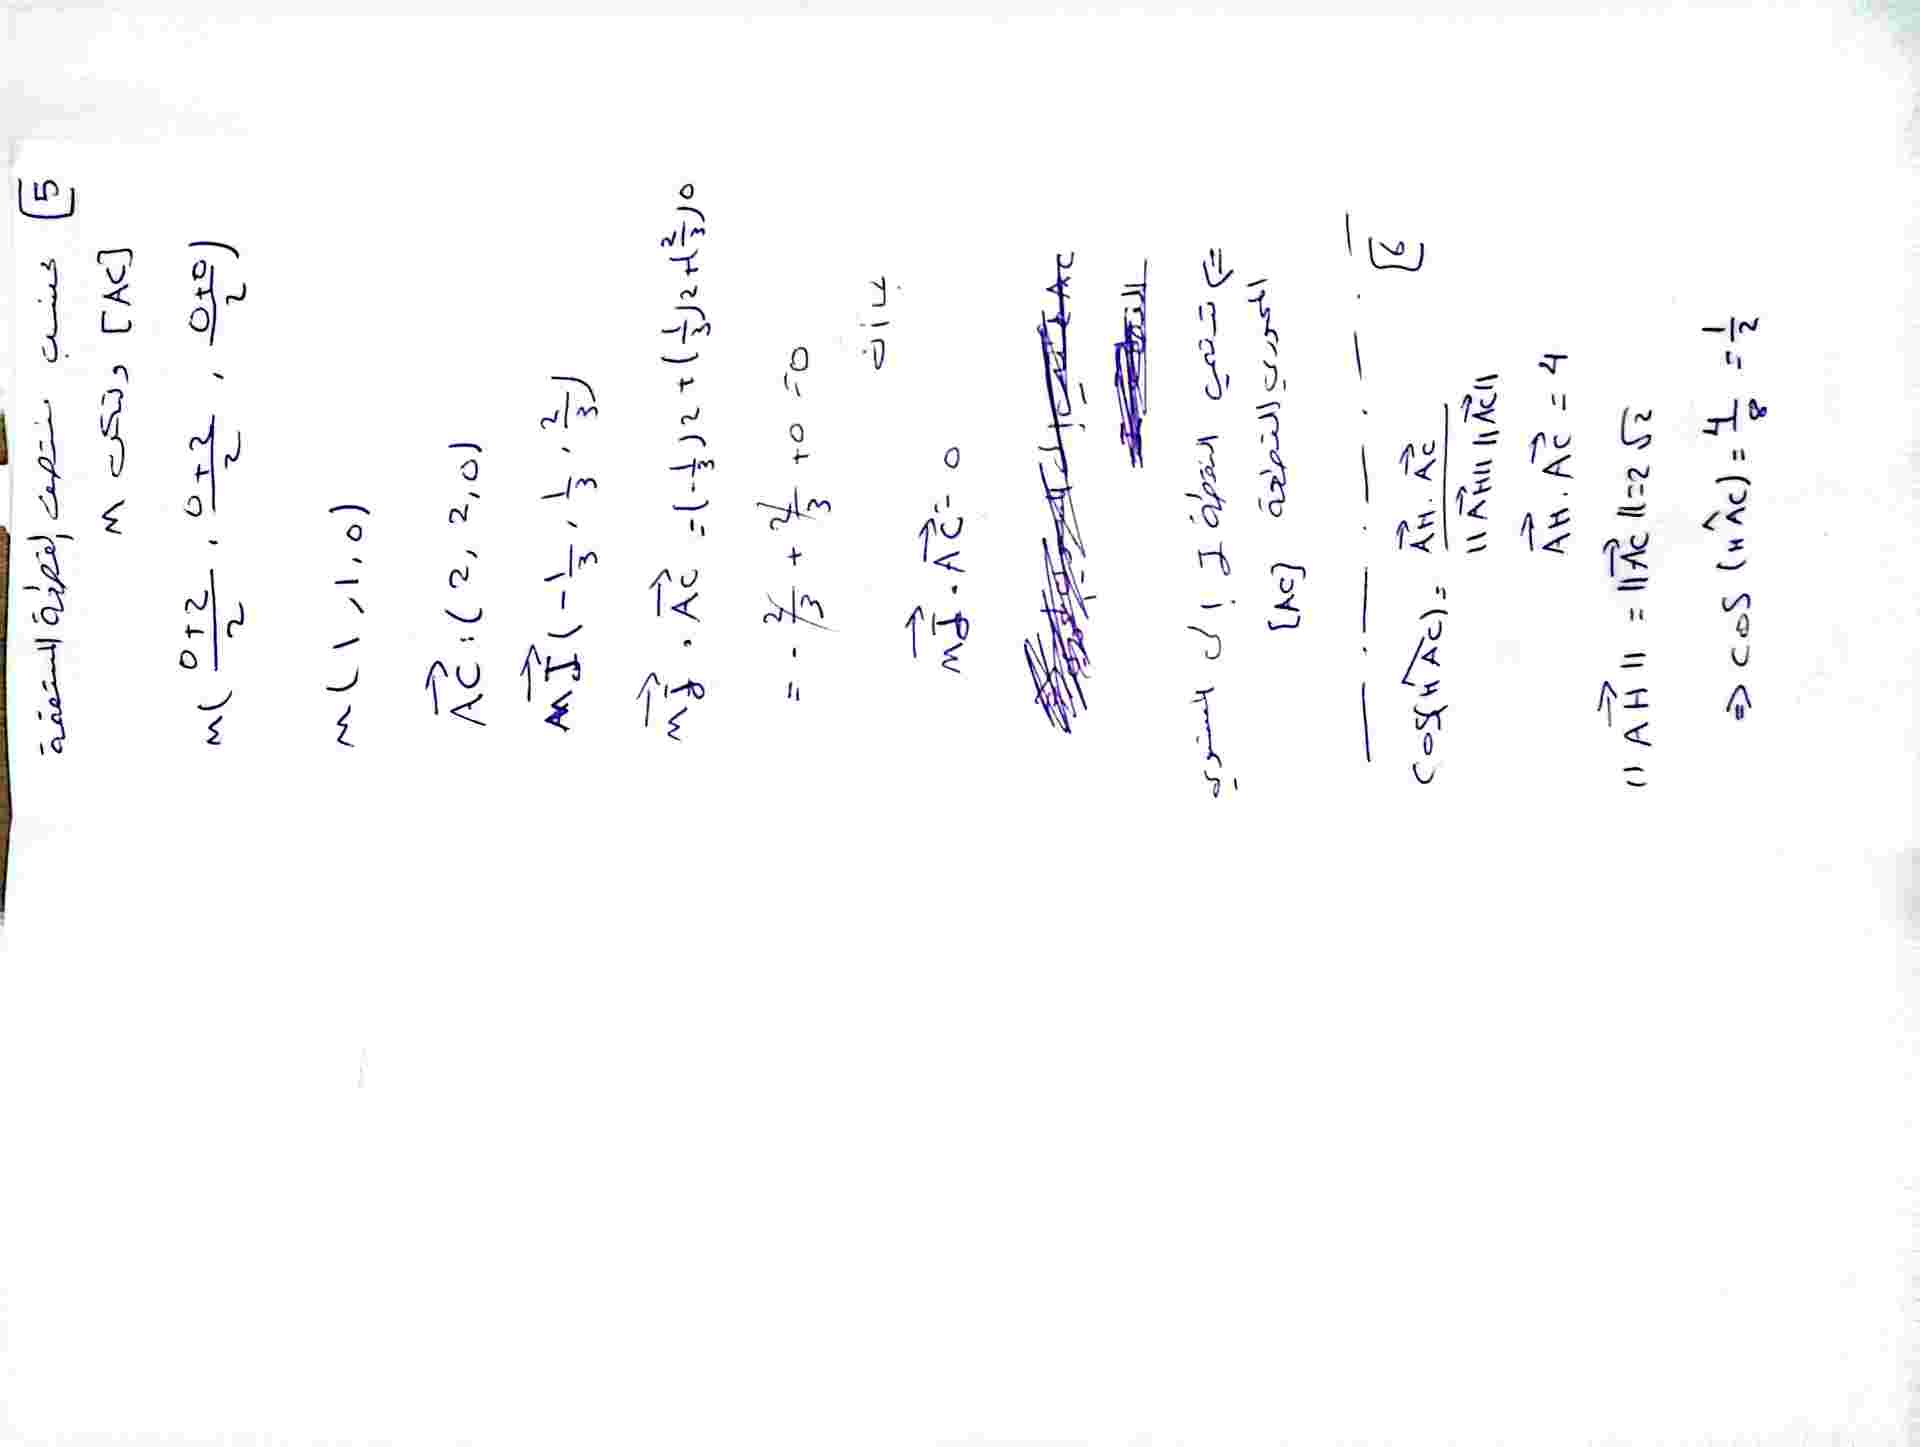 5 حسب منتصف القطعة المستقيمة
[AC] وليكن m
m(0+2/2, 0+2/2, 0+0/2)
m(1, 1, 0)
AC⃗: (2, 2, 0)
mI⃗ (-1/3, 1/3, 2/3)
mI⃗ . AC⃗ = (-1/3)2 + (1/3)2 + (2/3)0
= -2/3 + 2/3 + 0 = 0
mI⃗ . AC⃗ = 0
⇐ تنتمي النقطة I إلى المستوي
المحوري للقطعة
[AC]
6
cos(HAC) = AH⃗ . AC⃗ / ||AH⃗|| ||AC⃗||
AH⃗ . AC⃗ = 4
||AH⃗|| = ||AC⃗|| = 2√2
⇒ cos(HAC) = 4/8 = 1/2